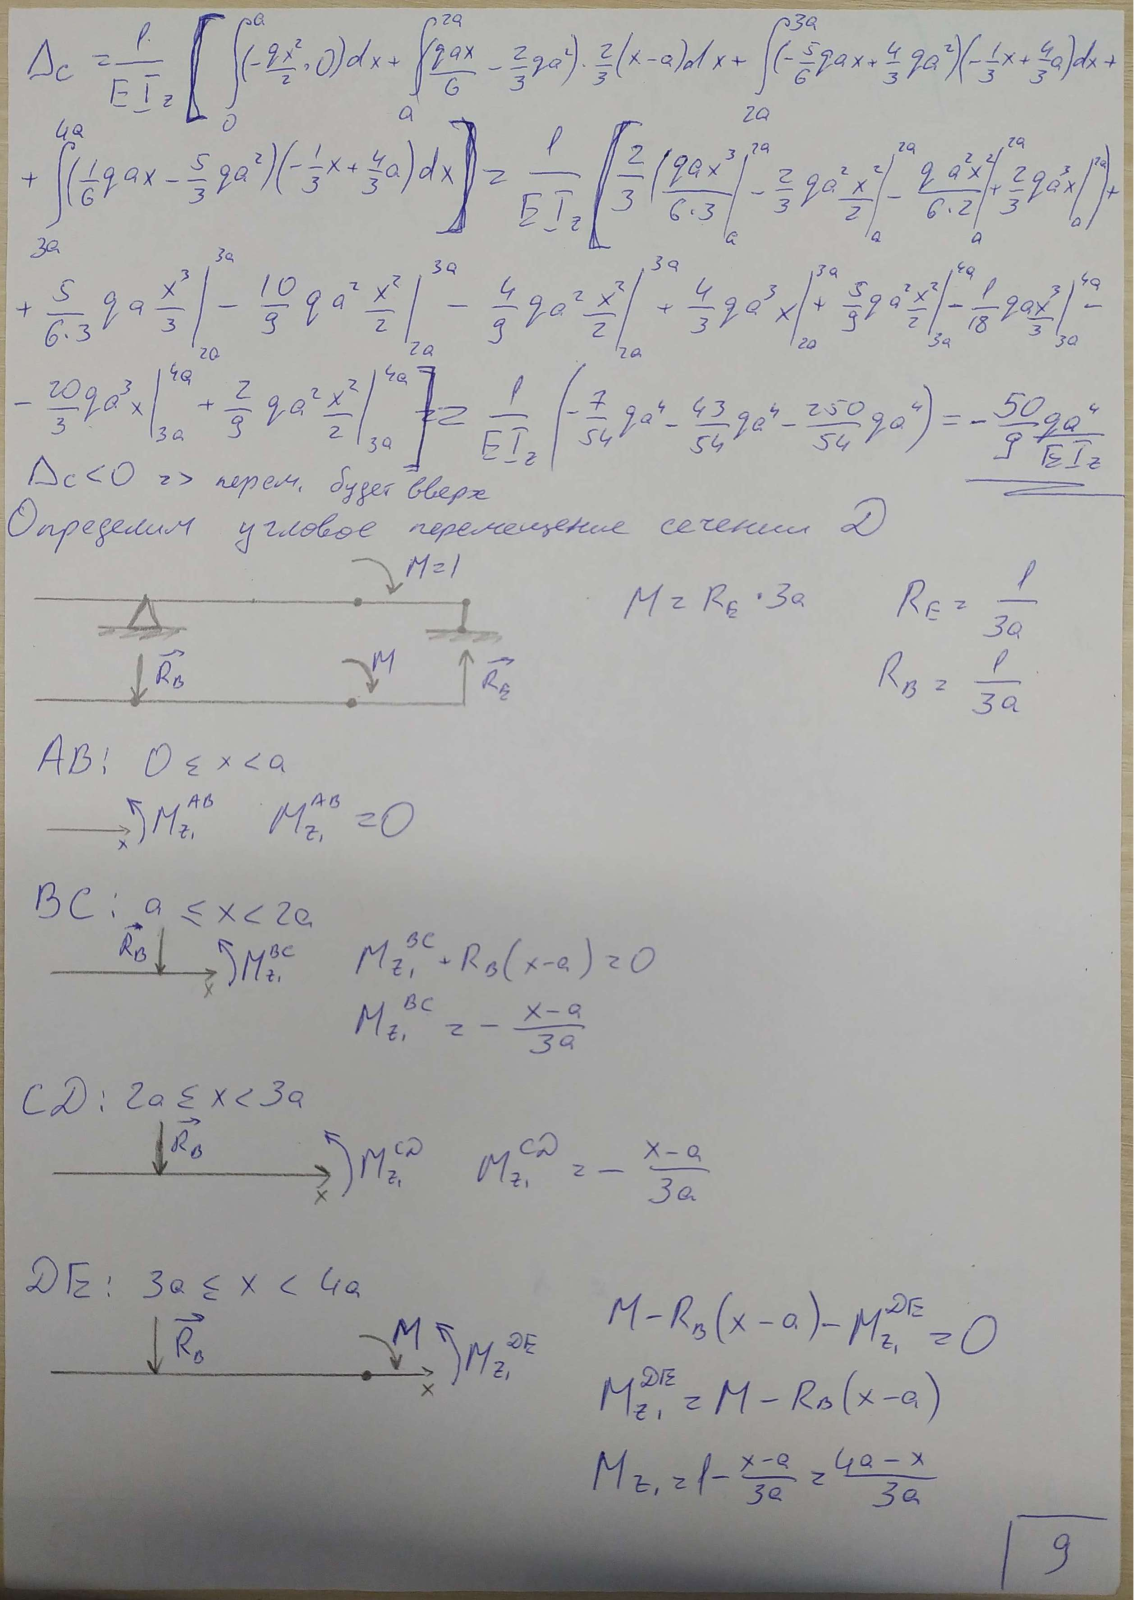 Δc = 1/(EIz) [ ∫₀ᵃ (-qx²/2 · 0)dx + ∫ₐ²ᵃ (qax/6 - 2/3 qa²) · 2/3 (x-a)dx + ∫₂ₐ³ᵃ (-5/6 qax + 4/3 qa²)(-1/3 x + 4/3 a)dx +
+ ∫₃ₐ⁴ᵃ (1/6 qax - 5/3 qa²)(-1/3 x + 4/3 a)dx ] = 1/(EIz) [ 2/3 ( qax³/(6·3) |ₐ²ᵃ - 2/3 qa² x²/2 |ₐ²ᵃ - qa²x²/(6·2) |ₐ²ᵃ + 2/3 qa³x |ₐ²ᵃ ) +
+ 5/(6·3) qa x³/3 |₂ₐ³ᵃ - 10/9 qa² x²/2 |₂ₐ³ᵃ - 4/9 qa² x²/2 |₂ₐ³ᵃ + 4/3 qa³ x |₂ₐ³ᵃ + 5/9 qa² x²/2 |₃ₐ⁴ᵃ - 1/18 qa x³/3 |₃ₐ⁴ᵃ -
- 20/3 qa³x |₃ₐ⁴ᵃ + 2/9 qa² x²/2 |₃ₐ⁴ᵃ ] = 1/(EIz) ( -7/54 qa⁴ - 43/54 qa⁴ - 250/54 qa⁴ ) = - 50/9 qa⁴/(EIz)
Δc < 0 => перем. будет вверх
Определим угловое перемещение сечения D
M=1
M = RE · 3a RE = 1/(3a)
RB M RE RB = 1/(3a)
AB: 0 ≤ x < a
x Mz₁ᴬᴮ Mz₁ᴬᴮ = 0
BC: a ≤ x < 2a
RB x Mz₁ᴮᶜ Mz₁ᴮᶜ + RB(x-a) = 0
Mz₁ᴮᶜ = - (x-a)/(3a)
CD: 2a ≤ x < 3a
RB x Mz₁ᶜᴰ Mz₁ᶜᴰ = - (x-a)/(3a)
DE: 3a ≤ x < 4a
RB M x Mz₁ᴰᴱ M - RB(x-a) - Mz₁ᴰᴱ = 0
Mz₁ᴰᴱ = M - RB(x-a)
Mz₁ = 1 - (x-a)/(3a) = (4a-x)/(3a)
9